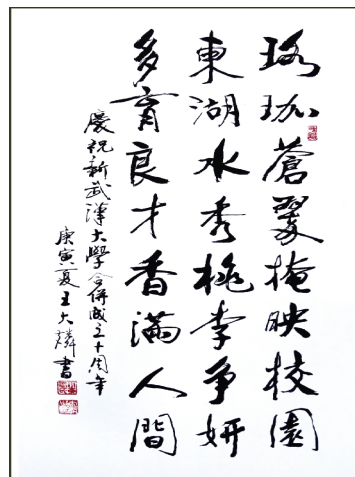 珞珈蒼翠掩映校園
東湖水秀桃李爭妍
多育良才香滿人間
慶祝新武漢大學合併成立十周年
庚寅夏王大麟書